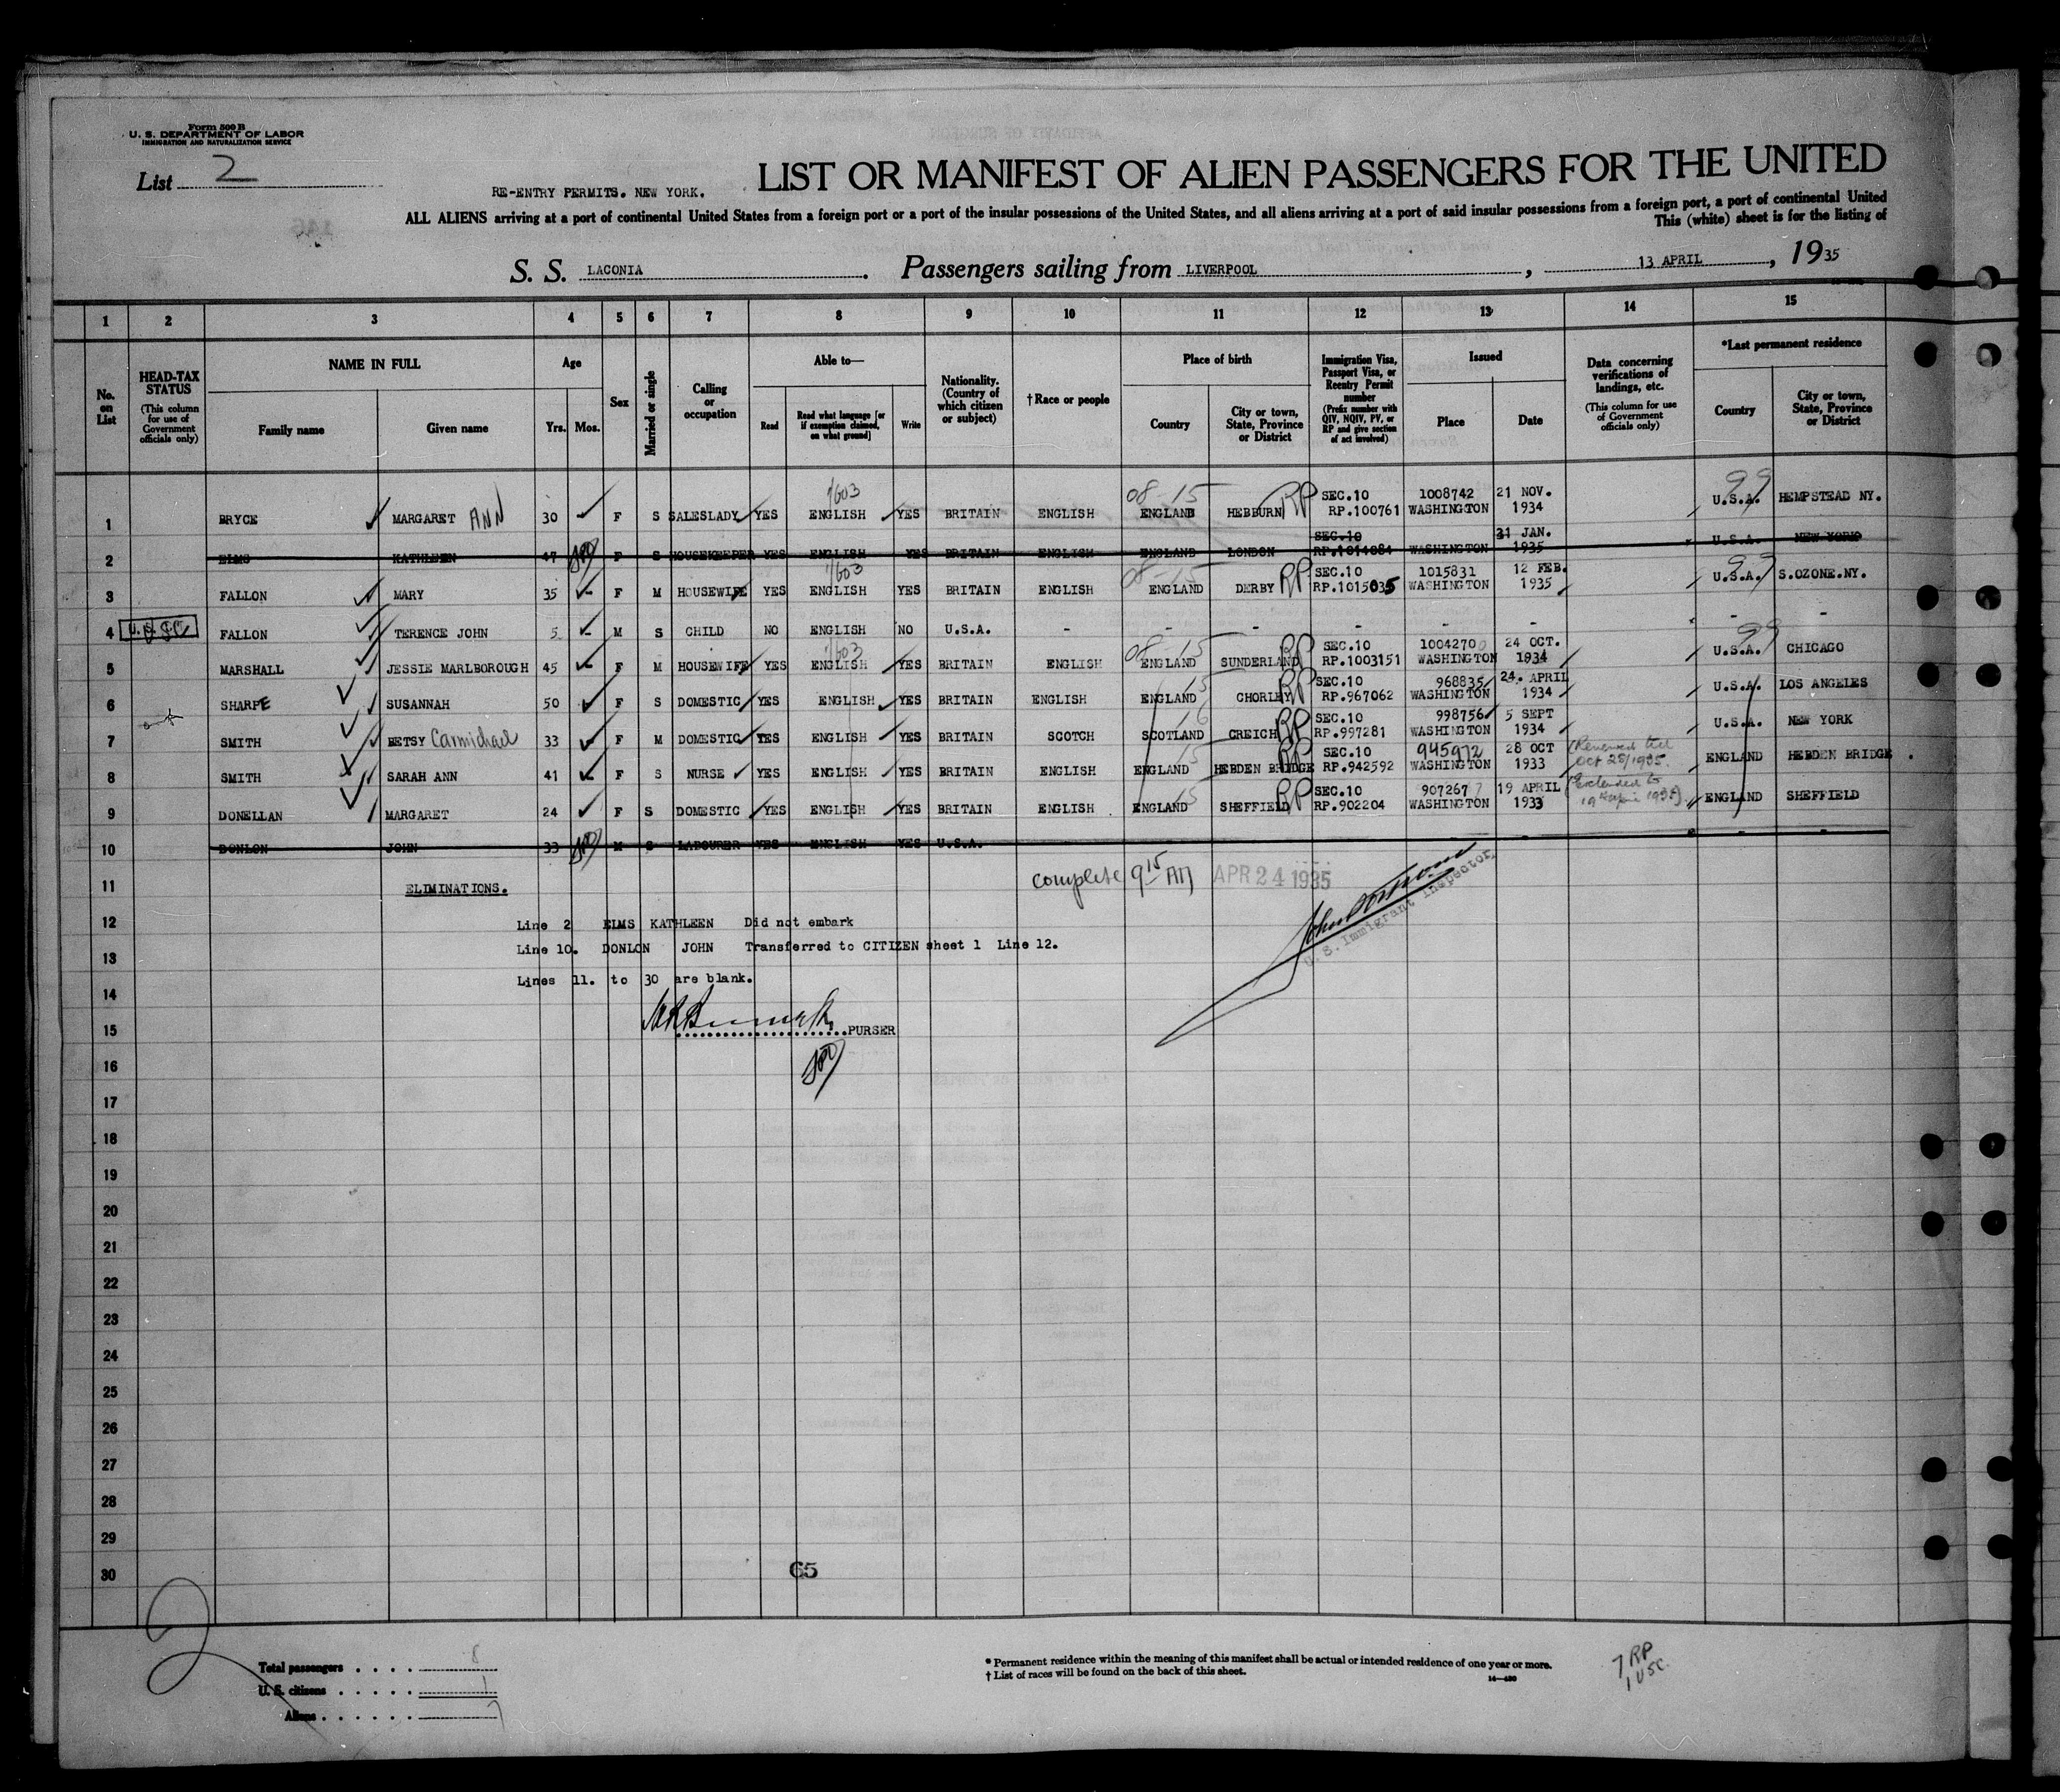 Form 500 B
U. S. DEPARTMENT OF LABOR
IMMIGRATION AND NATURALIZATION SERVICE
List 2
RE-ENTRY PERMITS. NEW YORK.
LIST OR MANIFEST OF ALIEN PASSENGERS FOR THE UNITED
ALL ALIENS arriving at a port of continental United States from a foreign port or a port of the insular possessions of the United States, and all aliens arriving at a port of said insular possessions from a foreign port, a port of continental United
This (white) sheet is for the listing of
S. S. LACONIA. Passengers sailing from LIVERPOOL, 13 APRIL, 1935
1 2 3 4 5 6 7 8 9 10 11 12 13 14 15
No. on List
HEAD-TAX STATUS (This column for use of Government officials only)
NAME IN FULL
Family name Given name
Age
Yrs. Mos.
Sex
Married or single
Calling or occupation
Able to—
Read Read what language [or if exemption claimed, on what ground] Write
Nationality. (Country of which citizen or subject)
†Race or people
Place of birth
Country City or town, State, Province or District
Immigration Visa, Passport Visa, or Reentry Permit number (Prefix number with QIV, NQIV, PV, or RP and give section of act involved)
Issued
Place Date
Data concerning verifications of landings, etc. (This column for use of Government officials only)
*Last permanent residence
Country City or town, State, Province or District
7603 08-15 RP SEC.10 1008742 21 NOV. 99
1 BRYCE MARGARET ANN 30 F S SALESLADY YES ENGLISH YES BRITAIN ENGLISH ENGLAND HEBBURN RP.100761 WASHINGTON 1934 U.S.A. HEMPSTEAD NY.
SEC.10 31 JAN.
2 ELMS KATHLEEN 47 F S HOUSEKEEPER YES ENGLISH YES BRITAIN ENGLISH ENGLAND LONDON RP.1014084 WASHINGTON 1935 U.S.A. NEW YORK
7603 08-15 RP SEC.10 1015831 12 FEB. 99
3 FALLON MARY 35 F M HOUSEWIFE YES ENGLISH YES BRITAIN ENGLISH ENGLAND DERBY RP.1015035 WASHINGTON 1935 U.S.A. S.OZONE.NY.
4 USC FALLON TERENCE JOHN 5 M S CHILD NO ENGLISH NO U.S.A. - - - - - - - -
7603 08-15 RP SEC.10 1004270 24 OCT. 99
5 MARSHALL JESSIE MARLBOROUGH 45 F M HOUSEWIFE YES ENGLISH YES BRITAIN ENGLISH ENGLAND SUNDERLAND RP.1003151 WASHINGTON 1934 U.S.A. CHICAGO
15 RP SEC.10 968835 24. APRIL
6 SHARPE SUSANNAH 50 F S DOMESTIC YES ENGLISH YES BRITAIN ENGLISH ENGLAND CHORLEY RP.967062 WASHINGTON 1934 U.S.A. LOS ANGELES
16 RP SEC.10 998756 5 SEPT
7 SMITH BETSY Carmichael 33 F M DOMESTIC YES ENGLISH YES BRITAIN SCOTCH SCOTLAND CREICH RP.997281 WASHINGTON 1934 U.S.A. NEW YORK
15 RP SEC.10 945972 28 OCT Renewed till
8 SMITH SARAH ANN 41 F S NURSE YES ENGLISH YES BRITAIN ENGLISH ENGLAND HEBDEN BRIDGE RP.942592 WASHINGTON 1933 Oct 28/1935. ENGLAND HEBDEN BRIDGE
15 RP SEC.10 907267 19 APRIL (Extended to
9 DONELLAN MARGARET 24 F S DOMESTIC YES ENGLISH YES BRITAIN ENGLISH ENGLAND SHEFFIELD RP.902204 WASHINGTON 1933 19th April 1935) ENGLAND SHEFFIELD
10 DONLON JOHN 33 M S LABOURER YES ENGLISH YES U.S.A. - - -
11 ELIMINATIONS. complete 9 15 AM APR 24 1935
12 Line 2 ELMS KATHLEEN Did not embark
U. S. Immigrant Inspector
13 Line 10. DONLON JOHN Transferred to CITIZEN sheet 1 Line 12.
14 Lines 11. to 30 are blank.
15 PURSER
16
17
18
19
20
21
22
23
24
25
26
27
28
29
30
65
Total passengers 8
U. S. citizens 1
Aliens 7
* Permanent residence within the meaning of this manifest shall be actual or intended residence of one year or more.
† List of races will be found on the back of this sheet.
14—430
7 RP
1 USC.